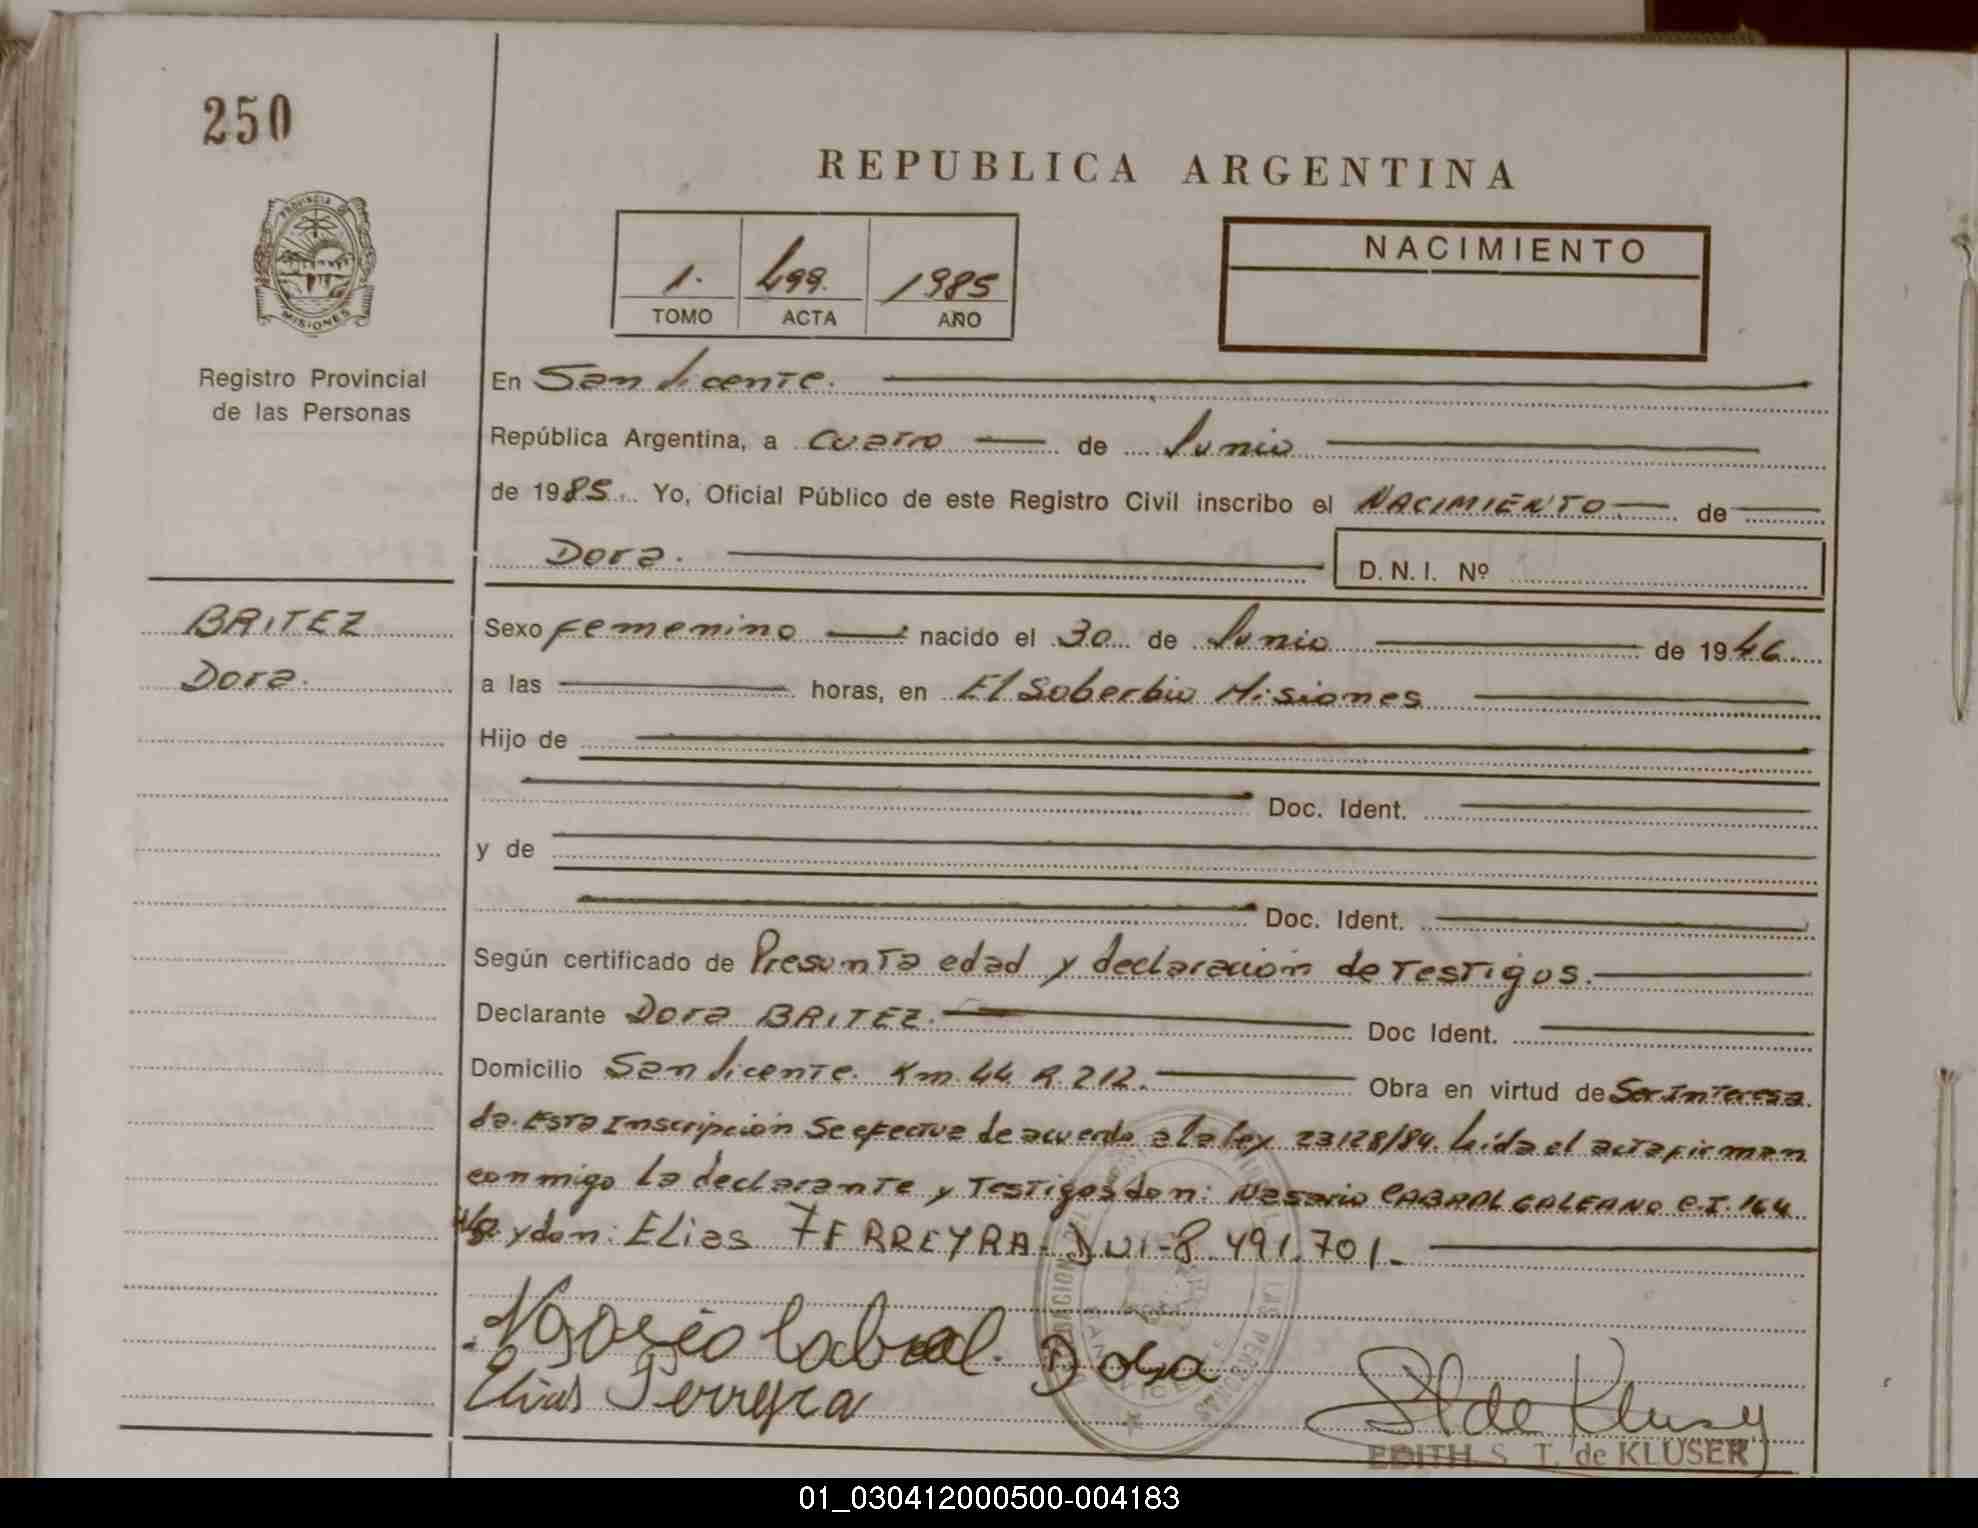 250
REPUBLICA ARGENTINA
PROVINCIA D
MISIONES
Registro Provincial
de las Personas
1. 499. 1985
TOMO ACTA AÑO
NACIMIENTO
En San Vicente.
República Argentina, a cuatro de Junio
de 1985 Yo, Oficial Público de este Registro Civil inscribo el NACIMIENTO de
Dora. D.N.I. Nº
BRITEZ
Dora.
Sexo femenino nacido el 30 de Junio de 1946
a las horas, en El Soberbio Misiones
Hijo de
Doc. Ident.
y de
Doc. Ident.
Según certificado de Presunta edad y declaración de Testigos.
Declarante Dora BRITEZ. Doc Ident.
Domicilio San Vicente. Km. 44 R. 212. Obra en virtud de Ser Interesa
da. Esta Inscripción Se efectua de acuerdo a la ley 23128/84. Leída el acta firman
conmigo la declarante y Testigos don: Nasario CABRAL GALEANO C.I. 164
y don: Elias FERREYRA- DNI-8.491.701.-
Nasario Cabral. Dora
Elias Ferreyra
EDITH S. T. de KLUSER
01_030412000500-004183